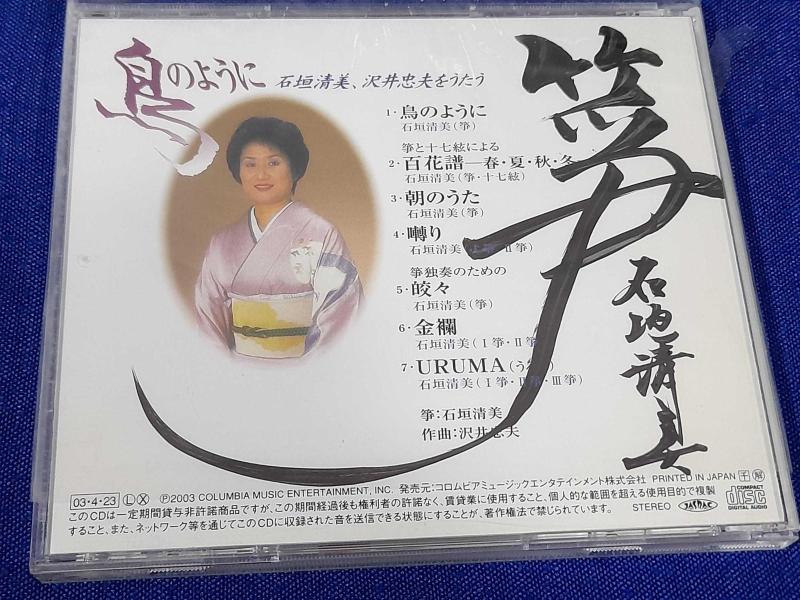 鳥のように 石垣清美、沢井忠夫をうたう
箏
石垣清美
1・鳥のように
石垣清美(箏)
箏と十七絃による
2・百花譜—春・夏・秋・冬
石垣清美(箏・十七絃)
3・朝のうた
石垣清美(箏)
4・囀り
石垣清美(Ⅰ箏・Ⅱ箏)
箏独奏のための
5・皎々
石垣清美(箏)
6・金襴
石垣清美(Ⅰ箏・Ⅱ箏)
7・URUMA(うるま)
石垣清美(Ⅰ箏・Ⅱ箏・Ⅲ箏)
箏:石垣清美
作曲:沢井忠夫
03・4・23 Ⓛ Ⓧ ℗2003 COLUMBIA MUSIC ENTERTAINMENT, INC. 発売元:コロムビアミュージックエンタテインメント株式会社 PRINTED IN JAPAN
このCDは一定期間貸与非許諾商品ですが、この期間経過後も権利者の許諾なく、賃貸業に使用すること、個人的な範囲を超える使用目的で複製
すること、また、ネットワーク等を通じてこのCDに収録された音を送信できる状態にすることが、著作権法で禁じられています。
STEREO JASRAC
COMPACT
disc
DIGITAL AUDIO